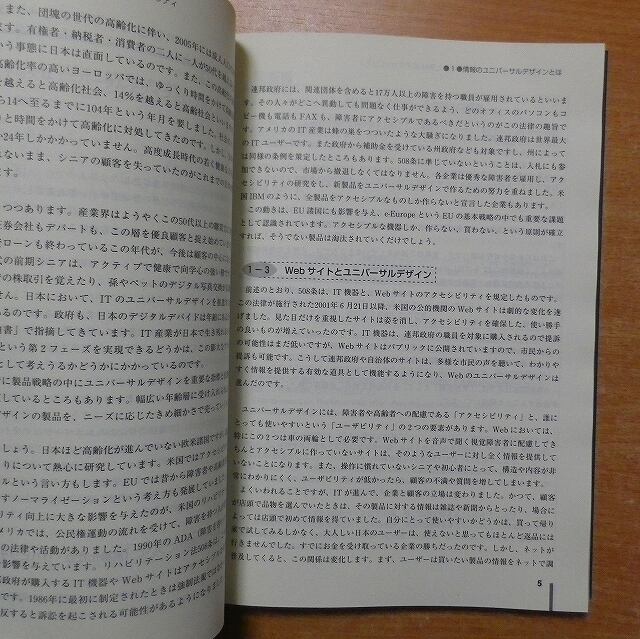 また、団塊の世代の高齢化に伴い、2005年には
ます。有権者・納税者・消費者の二人に一人が50代を
いう事態に日本は直面しているのです。また、この高齢
高齢化率の高いヨーロッパでは、ゆっくり時間をかけて高齢
を越えると高齢化社会、14%を越えると高齢社会といい
から14へ至るまでに104年という年月を要しました。社会
くりと時間をかけて高齢化に対処してきたのです。しかし、
24年しかかかっていません。高度成長時代の若く健康な
れないまま、シニアの顧客を失っていたのがこれまでの
つつあります。産業界はようやくこの50代以上の
証券会社もデパートも、この層を優良顧客と捉え始めてい
宅ローンも終わっているこの年代が、今後は顧客の中心に
代の前期シニアは、アクティブで健康で向学心の強い
の株取引を覚えたり、孫やペットのデジタル写真交換
ません。日本において、ITのユニバーサルデザインを推進
るのです。政府も、日本のデジタルデバイドは年齢に
白書」で指摘してきています。IT産業が日本で生き残
という第2フェーズを実現できるかどうかは、この膨大な
として考えうるかどうかにかかっているのです。
に製品戦略の中にユニバーサルデザインを重要な指標と
しているところもあります。幅広い年齢層に受け入れ
デザインの製品を、ニーズに応じたきめ細かさで売ってい
しょう。日本ほど高齢化が進んでいない欧米諸国ですが
りについて熱心に研究しています。米国ではアクセシ
ルという言い方もします。EUでは昔から障害者や高齢
すノーマライゼーションという考え方も発展していました
リティ向上に大きな影響を与えたのが、米国のリハビリテ
メリカでは、公民権運動の流れを受けて、障害を持つ
の法律や活動がありました。1990年のADA（障害を持つ
な影響を与えています。リハビリテーション法508条は、
邦政府が購入するIT機器やWebサイトはアクセシブ
です。1986年に最初に制定されたときは強制法案ではなく
反すると訴訟を起こされる可能性があるようになりまし
●1●情報のユニバーサルデザインとは
連邦政府には、関連団体を含めると17万人以上の障害を持つ職員が雇用されているといいま
す。その人々がどこへ異動しても問題なく仕事ができるよう、どのオフィスのパソコンもコ
ピー機も電話もFAXも、障害者にアクセシブルであるべきだというのがこの法律の趣旨で
す。アメリカのIT産業は蜂の巣をつついたような大騒ぎになりました。連邦政府は世界最大
のITユーザーです。また政府から補助金を受けている州政府なども対象ですし、州によって
は同様の条例を策定したところもあります。508条に準じていないということは、入札にも参
加できないので、市場から撤退しなくてはなりません。各企業は優秀な障害者を雇用し、アク
セシビリティの研究をし、新製品をユニバーサルデザインで作るための努力を重ねました。米
国IBMのように、全製品をアクセシブルなものしか作らないと宣言した企業もあります。
この動きは、EU諸国にも影響を与え、e-EuropeというEUの基本戦略の中でも重要な課題
として認識されています。アクセシブルな機器しか、作らない、買わない、という原則が確立
すれば、そうでない製品は淘汰されていくだけでしょう。
1－3 Webサイトとユニバーサルデザイン
前述のとおり、508条は、IT機器と、Webサイトのアクセシビリティを規定したものです。
この法律が施行された2001年6月21日以降、米国の公的機関のWebサイトは劇的な変化を遂
げました。見た目だけを重視したサイトは姿を消し、アクセシビリティを確保した、使い勝手
の良いものが増えていったのです。IT機器は、連邦政府の職員を対象に購入されるので提訴
の可能性はまだ低いですが、Webサイトはパブリックに公開されていますので、市民からの
提訴も可能です。こうして連邦政府や自治体のサイトは、多様な市民の声を聴いて、わかりや
すく情報を提供する有効な道具として機能するようになり、Webのユニバーサルデザインは
進んだのです。
ユニバーサルデザインには、障害者や高齢者への配慮である「アクセシビリティ」と、誰に
とっても使いやすいという「ユーザビリティ」の2つの要素があります。Webにおいては、
特にこの2つは車の両輪として必要です。Webサイトを音声で聞く視覚障害者に配慮してき
ちんとアクセシブルに作っていないサイトは、そのようなユーザーに対し全く情報を提供して
いないことになります。また、操作に慣れていないシニアや初心者にとって、構造や内容が非
常にわかりにくく、ユーザビリティが低かったら、顧客の不満や質問を増してしまいます。
よくいわれることですが、ITが進んで、企業と顧客の立場は変わりました。かつて、顧客
が店頭で品物を選んでいたときは、その製品に対する情報は雑誌や新聞からとったり、場合に
よっては店頭で初めて情報を得ていました。自分にとって使いやすいかどうかは、買って帰り
家で試してみるしかなく、大人しい日本のユーザーは、使えないと思ってもほとんど返品には
行きませんでした。すでにお金を受け取っている企業の勝ちだったのです。しかし、ネットが
普及してくると、この関係は変化します。まず、ユーザーは買いたい製品の情報をネットで調
5